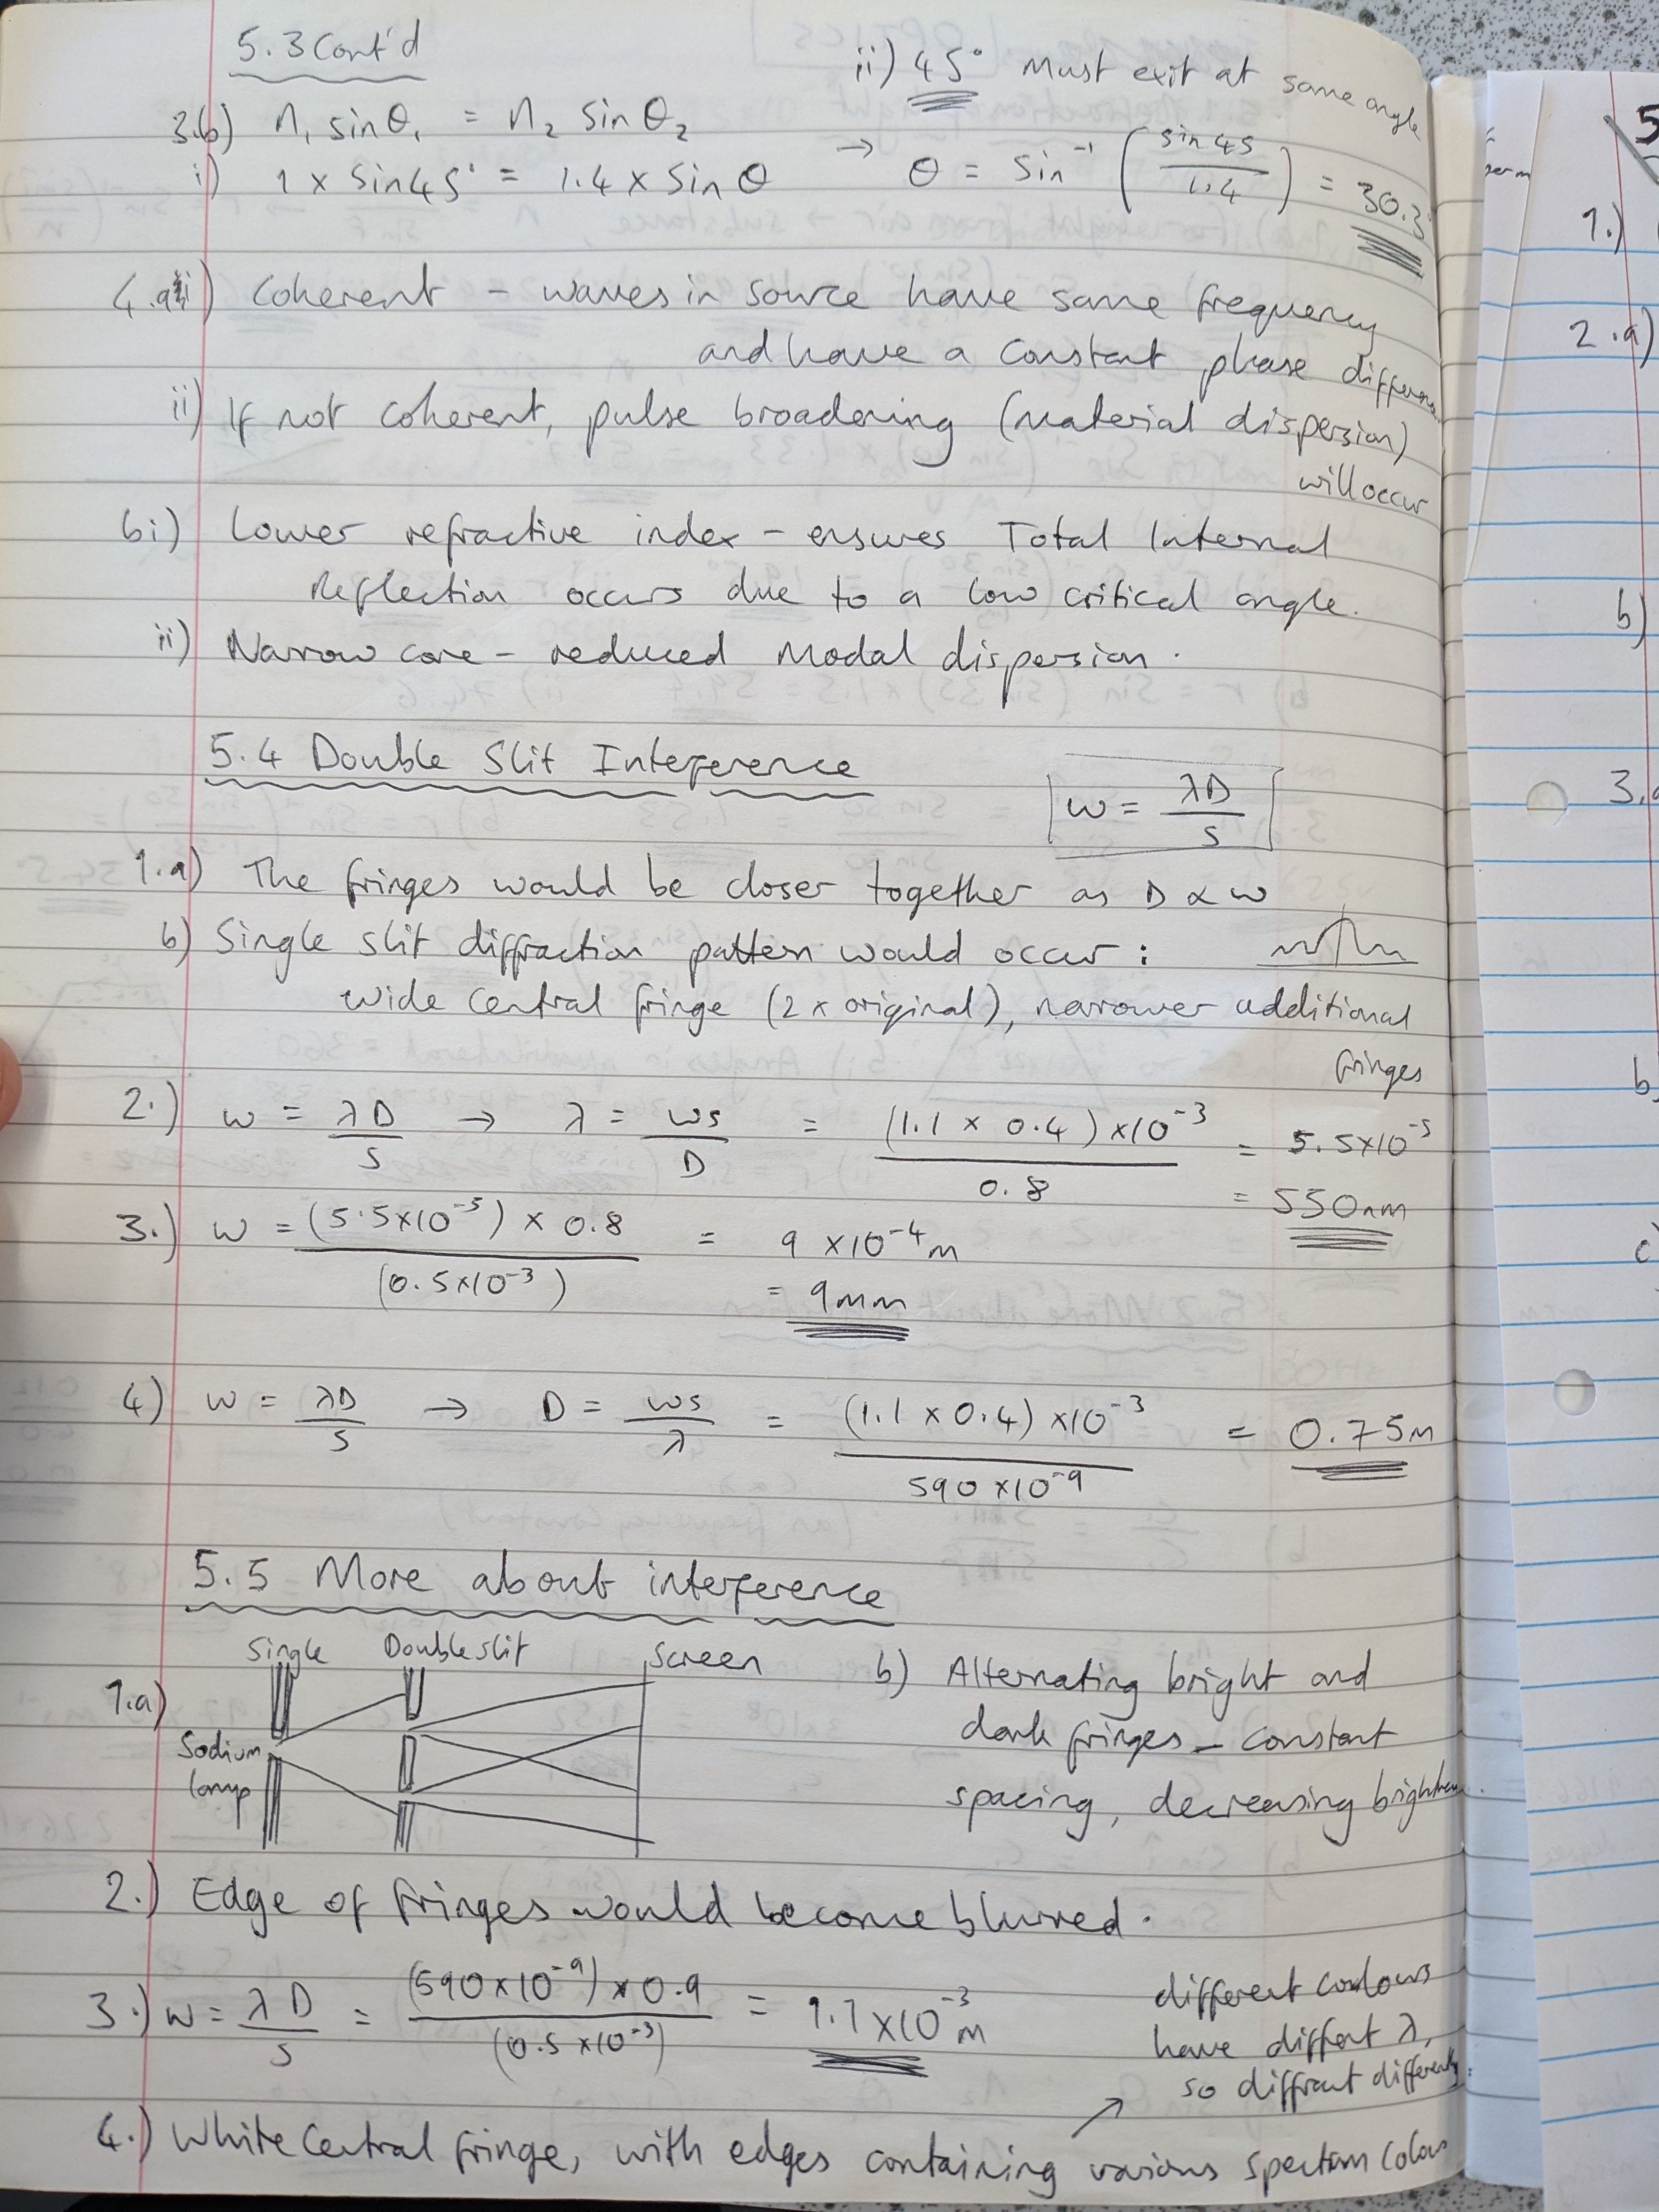 5.3 Cont'd
3.b) n₁ sinθ₁ = n₂ sinθ₂
i) 1 x sin45° = 1.4 x sinθ → θ = sin⁻¹ (sin 45 / 1.4) = 30.3°
ii) 45° Must exit at same angle
4.ai) Coherent - waves in source have same frequency
and have a constant phase difference
ii) If not coherent, pulse broadening (material dispersion)
will occur
bi) Lower refractive index - ensures Total Internal
Reflection occurs due to a low critical angle.
ii) Narrow core - reduced Modal dispersion.
5.4 Double Slit Inteference
w = λD / s
1.a) The fringes would be closer together as D ∝ w
b) Single slit diffraction pattern would occur :
wide central fringe (2x original), narrower additional
fringes
2.) w = λD / s → λ = ws / D = (1.1 x 0.4) x10⁻³ / 0.8 = 5.5x10⁻⁵
= 550nm
3.) w = (5.5x10⁻⁵) x 0.8 / (0.5x10⁻³) = 9 x10⁻⁴m
= 9mm
4) w = λD / s → D = ws / λ = (1.1 x 0.4) x10⁻³ / 590 x10⁻⁹ = 0.75m
5.5 More about interference
Single Double slit Screen
1.a)
Sodium
lamp
b) Alternating bright and
dark fringes - constant
spacing, decreasing brightness.
2.) Edge of fringes would become blurred.
3.) w = λD / s = (590x10⁻⁹) x 0.9 / (0.5 x10⁻³) = 1.1 x10⁻³m
different coulours
have diffent λ,
so diffract differently.
4.) White Central fringe, with edges containing various spectrum colours
5
perm
1.)
2.a)
b)
3.a
b)
c)